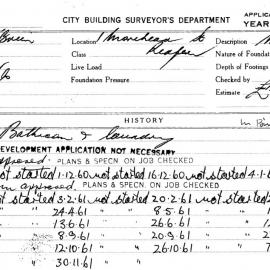 CITY BUILDING SURVEYOR'S DEPARTMENT
APPLICA
YEAR
Location Morehead St
Description
Class Redfern
Nature of Foundat
Live Load
Depth of Footings
Foundation Pressure
Checked by
Estimate £
HISTORY
Bathroom & laundry
DEVELOPMENT APPLICATION NOT NECESSARY
approved. PLANS & SPECN. ON JOB CHECKED
not started 1.12.60 not started 16.12.60 not started 4.1.6
approved. PLANS & SPECN. ON JOB CHECKED
not started 3.2.61 not started 20.2.61 not started
" " 24.4.61 " " 8.5.61 " "
" " 13.6.61 " " 26.6.61 " "
" " 8.9.61 " " 20.9.61 " "
" " 12.10.61 " " 26.10.61 " "
" " 30.11.61 " "